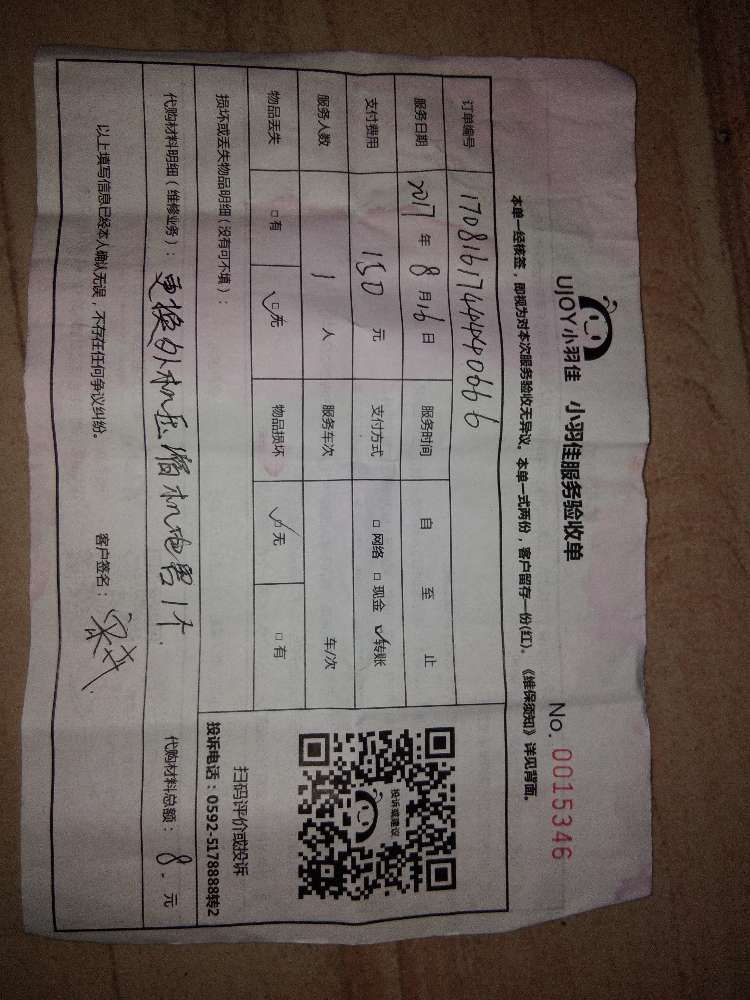 UJOY小羽佳 小羽佳服务验收单
No. 0015346
本单一经核签，即视为对本次服务验收无异议。本单一式两份，客户留存一份(红)。《维保须知》详见背面。
订单编号
服务日期 2017 年 8 月 16 日 服务时间 自 至 止
支付费用 150 元 支付方式 □ 网络 □ 现金 ☑ 转账
服务人数 1 人 服务车次 车/次
物品丢失 □ 有 ☑ 无 物品损坏 ☑ 无 □ 有
损坏或丢失物品明细（没有可不填）：
投诉或建议
扫码评价或投诉
投诉电话：0592-5178888转2
代购材料明细（维修业务）： 更换外机压缩机电容1个. 代购材料总额： 8. 元
以上填写信息已经本人确认无误，不存在任何争议纠纷。 客户签名：